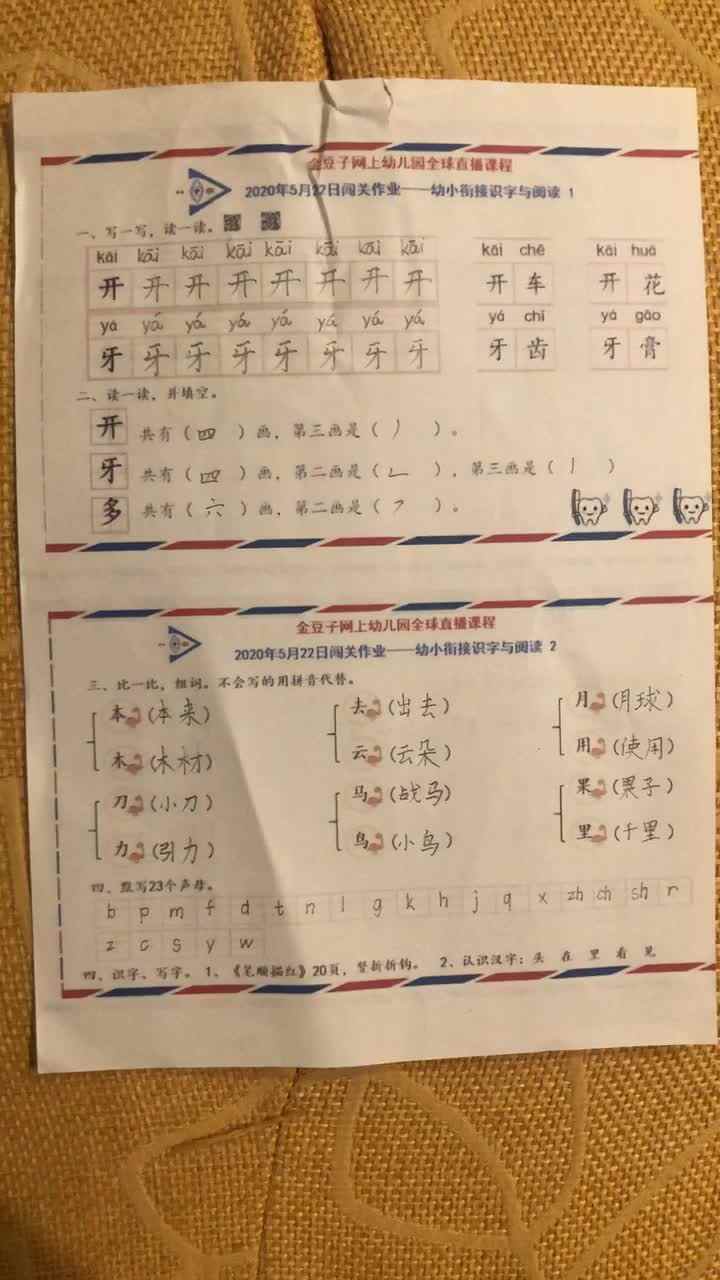 金豆子网上幼儿园全球直播课程
2020年5月22日闯关作业——幼小衔接识字与阅读 1
一、写一写，读一读。
kāi kāi kāi kāi kāi kāi kāi kāi kāi chē kāi huā
开 开 开 开 开 开 开 开 开 车 开 花
yá yá yá yá yá yá yá yá yá chǐ yá gāo
牙 牙 牙 牙 牙 牙 牙 牙 牙 齿 牙 膏
二、读一读，并填空。
开 共有（四）画，第三画是（丿）。
牙 共有（四）画，第二画是（㇗），第三画是（丨）
多 共有（六）画，第二画是（㇇）。
金豆子网上幼儿园全球直播课程
2020年5月22日闯关作业——幼小衔接识字与阅读 2
三、比一比，组词。不会写的用拼音代替。
本（本来） 去（出去） 月（月球）
木（木材） 云（云朵） 用（使用）
刀（小刀） 马（战马） 果（果子）
力（引力） 鸟（小鸟） 里（千里）
四、默写23个声母。
b p m f d t n l g k h j q x zh ch sh r
z c s y w
四、识字、写字。1、《笔顺描红》20页，竖折折钩。 2、认识汉字：头 在 里 看 见